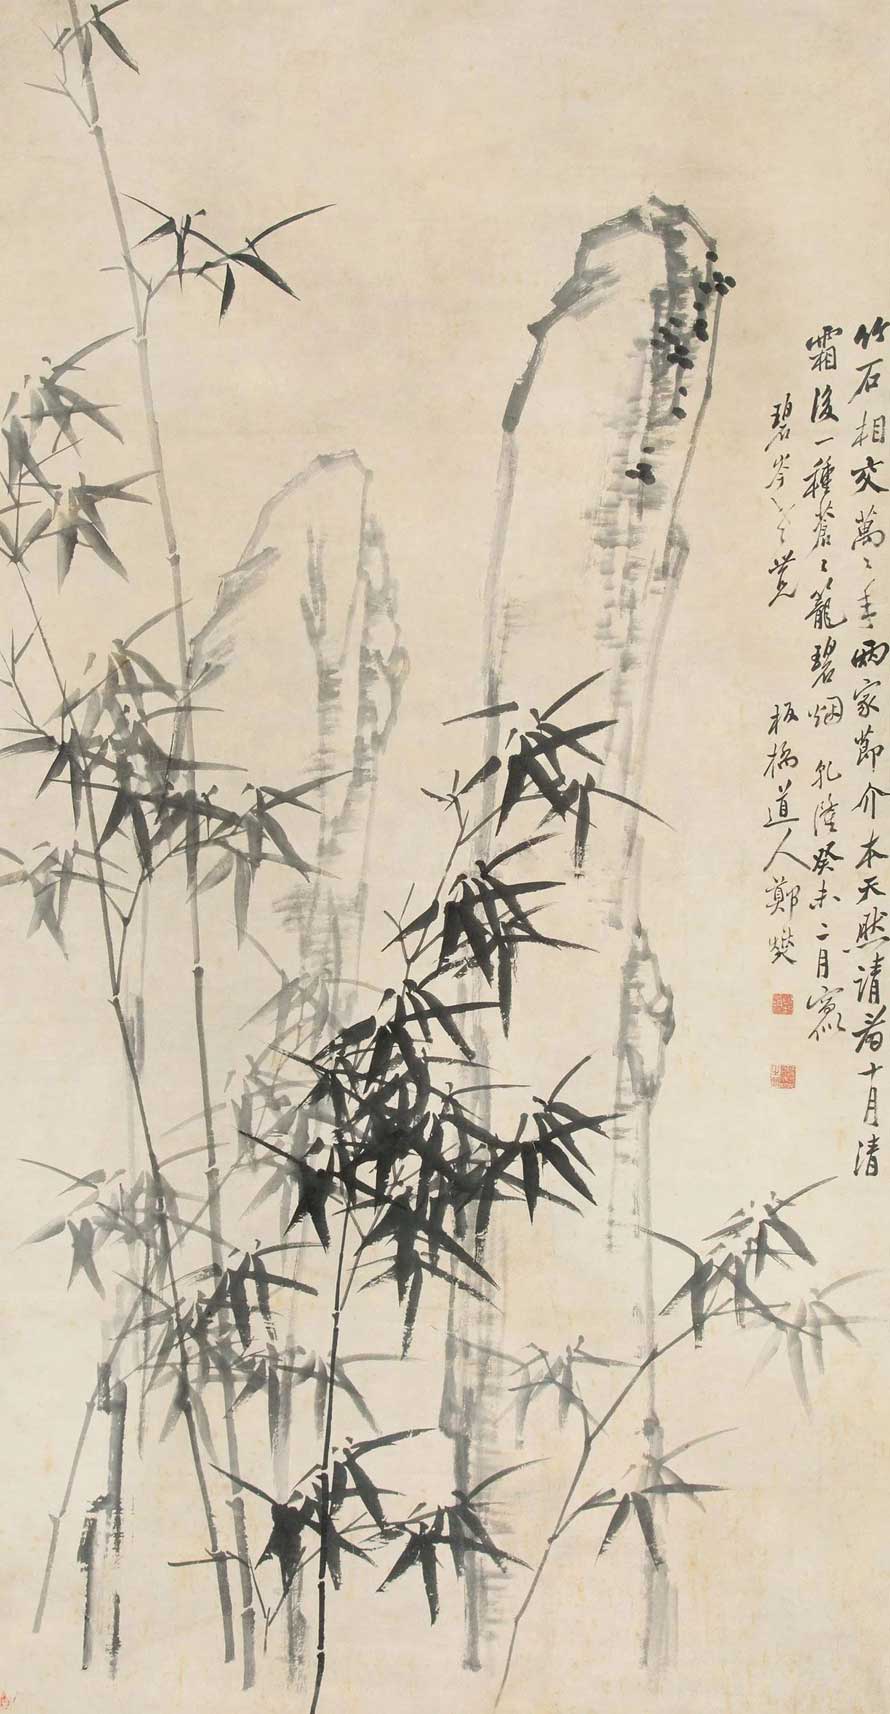 竹石相交萬〻年兩家節介本天然請看十月清
霜後一種蒼〻籠碧烟乾隆癸未二月寫
碧岑
板橋道人鄭燮